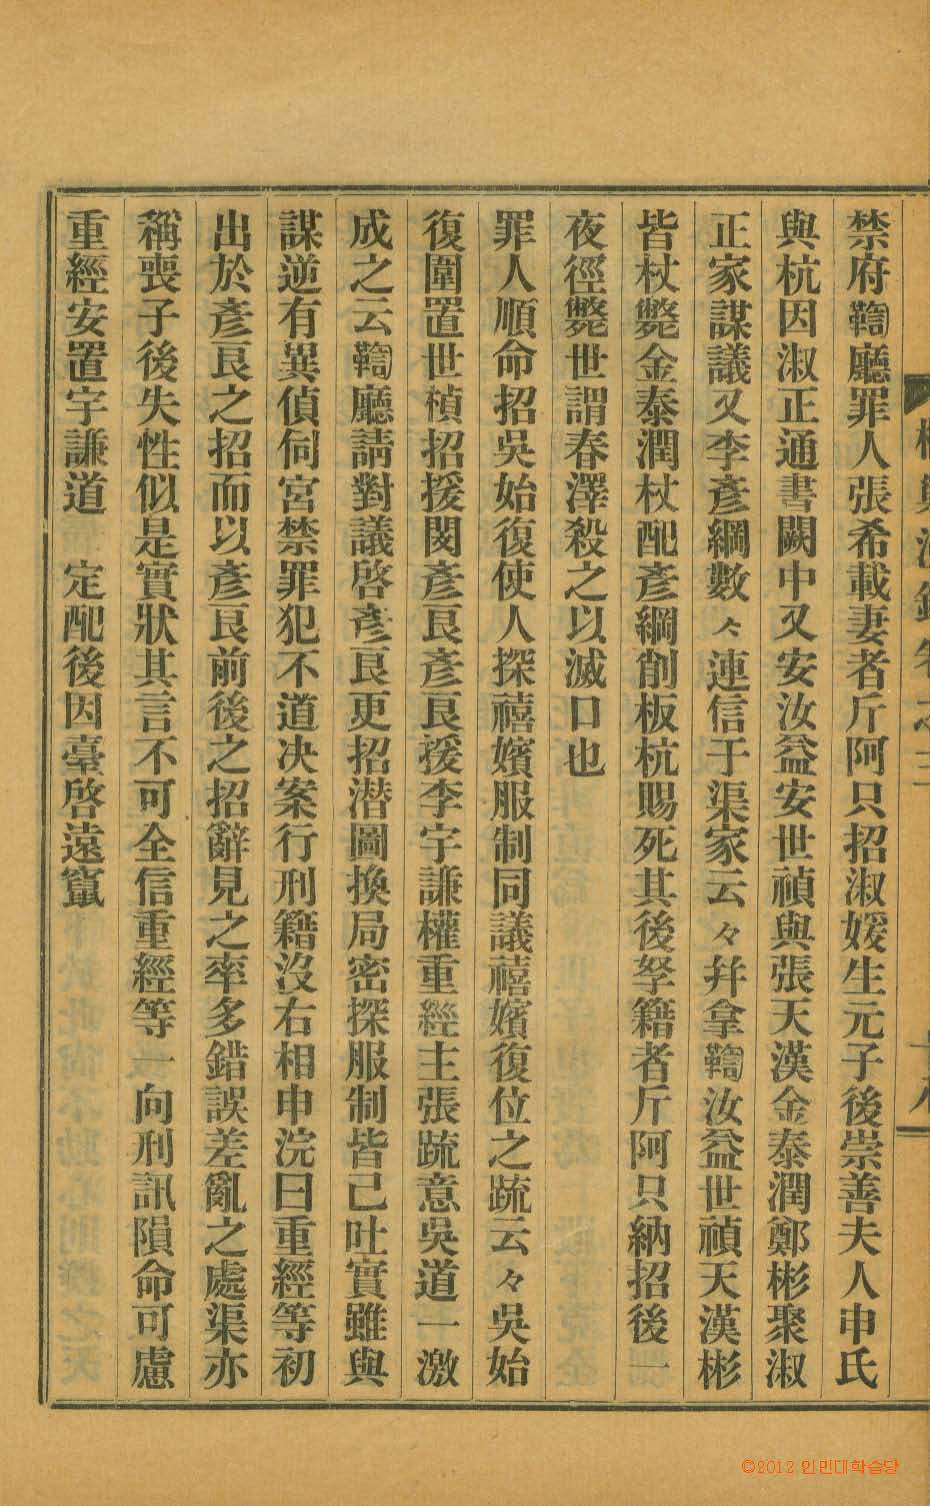 禁府鞫廳罪人張希載妻者斤阿只招淑媛生元子後崇善夫人申氏
與杭因淑正通書闕中又安汝益安世禎與張天漢金泰潤鄭彬聚淑
正家謀議又李彥綱數々連信于渠家云々幷拿鞫汝益世禎天漢彬
皆杖斃金泰潤杖配彥綱削板杭賜死其後孥籍者斤阿只納招後一
夜徑斃世謂春澤殺之以滅口也
罪人順命招吳始復使人探禧嬪服制同議禧嬪復位之疏云々吳始
復圍置世楨招援閔彥良彥良援李宇謙權重經主張疏意吳道一激
成之云鞫廳請對議啓彥良更招潛圖換局密探服制皆已吐實雖與
謀逆有異偵伺宮禁罪犯不道决案行刑籍沒右相申浣曰重經等初
出於彥良之招而以彥良前後之招辭見之率多錯誤差亂之處渠亦
稱喪子後失性似是實狀其言不可全信重經等一向刑訊隕命可慮
重經安置宇謙道一定配後因臺啓遠竄
©2012 인민대학습당